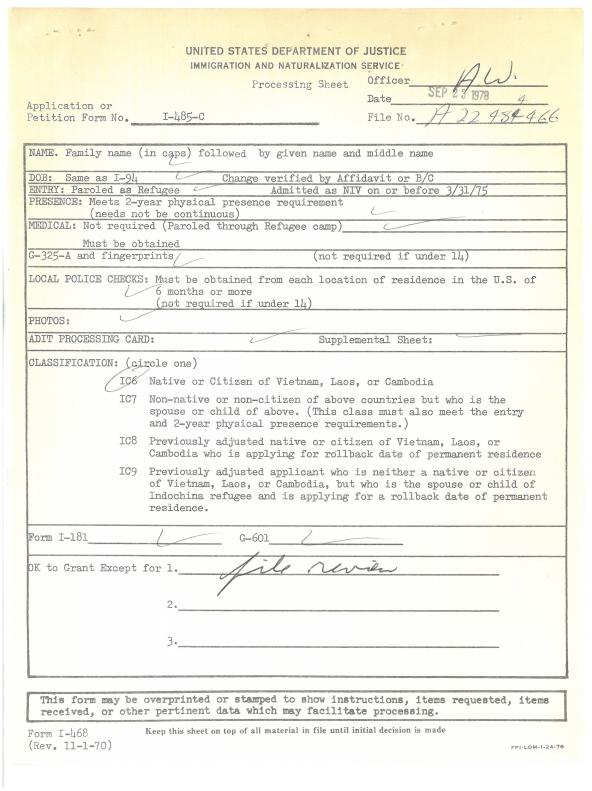 UNITED STATES DEPARTMENT OF JUSTICE
IMMIGRATION AND NATURALIZATION SERVICE
Processing Sheet
Officer AW.
Date SEP 23 1978
Application or
Petition Form No. I-485-C
File No. A 22 484 466
4
NAME. Family name (in caps) followed by given name and middle name
DOB: Same as I-94 Change verified by Affidavit or B/C
ENTRY: Paroled as Refugee Admitted as NIV on or before 3/31/75
PRESENCE: Meets 2-year physical presence requirement
(needs not be continuous)
MEDICAL: Not required (Paroled through Refugee camp)
Must be obtained
G-325-A and fingerprints (not required if under 14)
LOCAL POLICE CHECKS: Must be obtained from each location of residence in the U.S. of
6 months or more
(not required if under 14)
PHOTOS:
ADIT PROCESSING CARD: Supplemental Sheet:
CLASSIFICATION: (circle one)
IC6 Native or Citizen of Vietnam, Laos, or Cambodia
IC7 Non-native or non-citizen of above countries but who is the
spouse or child of above. (This class must also meet the entry
and 2-year physical presence requirements.)
IC8 Previously adjusted native or citizen of Vietnam, Laos, or
Cambodia who is applying for rollback date of permanent residence
IC9 Previously adjusted applicant who is neither a native or citizen
of Vietnam, Laos, or Cambodia, but who is the spouse or child of
Indochina refugee and is applying for a rollback date of permanent
residence.
Form I-181 G-601
OK to Grant Except for 1. file review
2.
3.
This form may be overprinted or stamped to show instructions, items requested, items
received, or other pertinent data which may facilitate processing.
Form I-468
(Rev. 11-1-70)
Keep this sheet on top of all material in file until initial decision is made
FPI-LOM-1-24-78